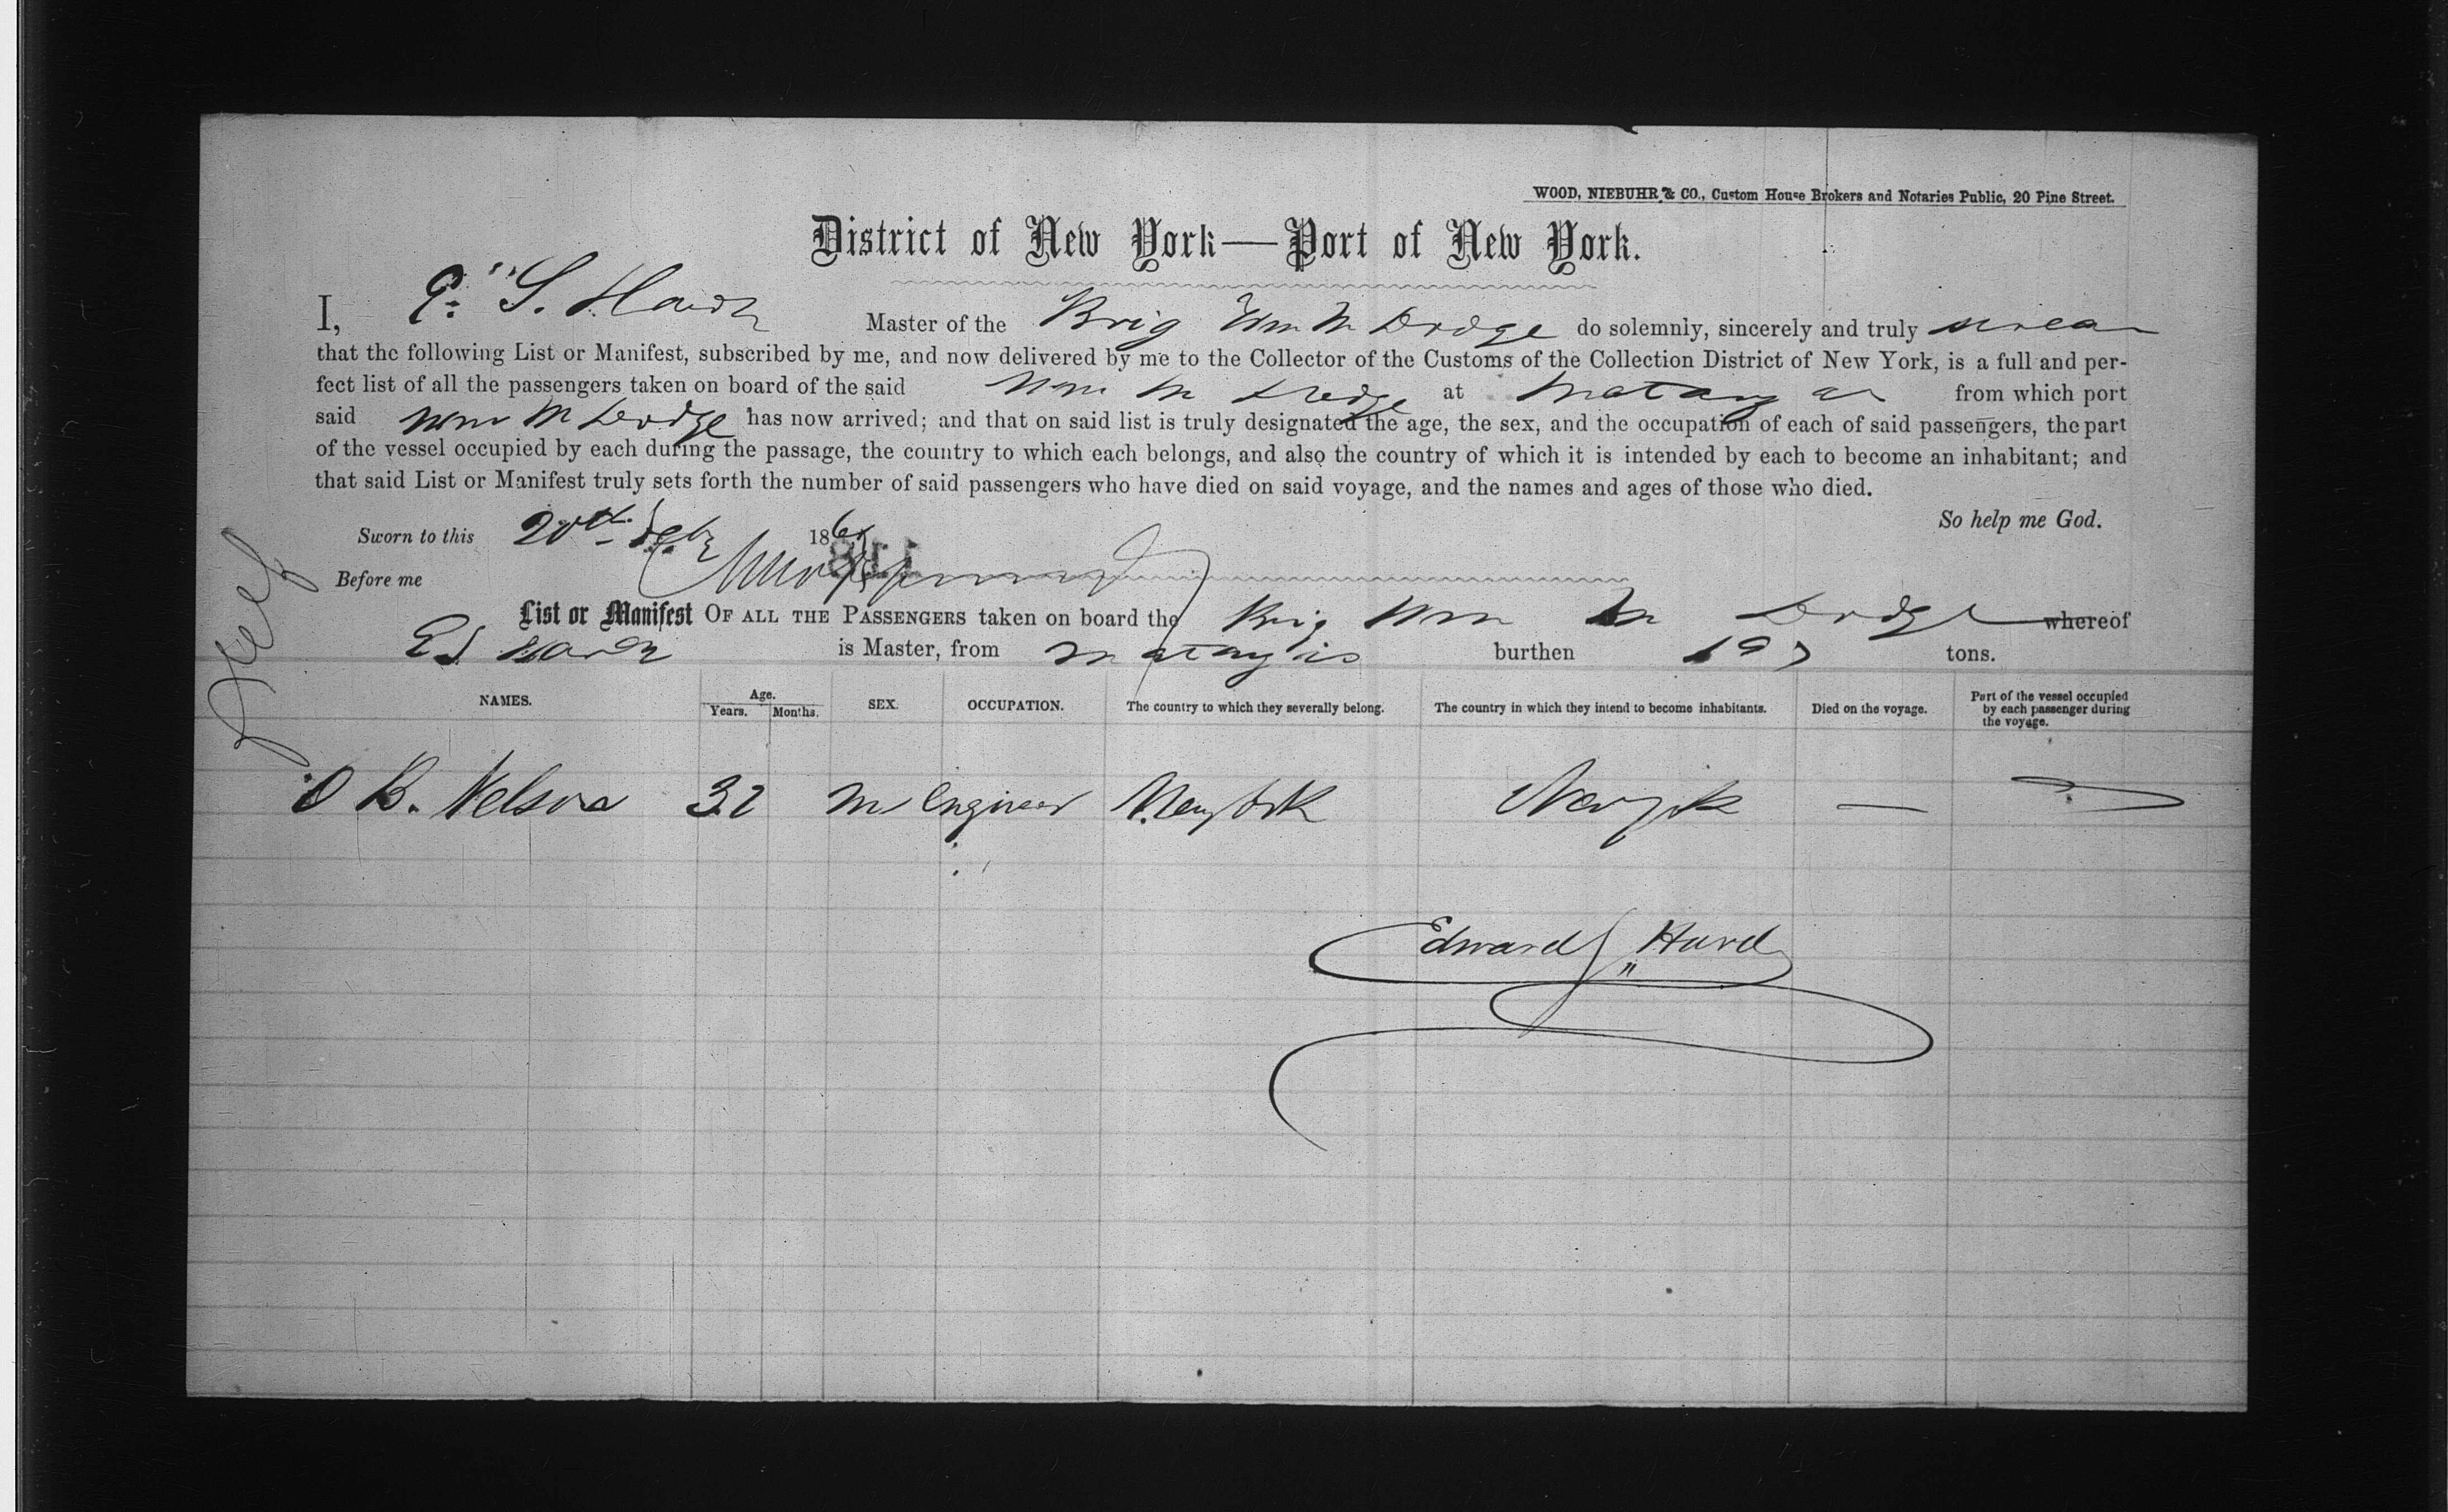 WOOD, NIEBUHR & CO., Custom House Brokers and Notaries Public, 20 Pine Street.
District of New York—Port of New York.
I, E. S. Master of the Brig Wm M Dodge do solemnly, sincerely and truly swear
that the following List or Manifest, subscribed by me, and now delivered by me to the Collector of the Customs of the Collection District of New York, is a full and per-
fect list of all the passengers taken on board of the said Wm M Dodge at Matanzas from which port
said Wm M Dodge has now arrived; and that on said list is truly designated the age, the sex, and the occupation of each of said passengers, the part
of the vessel occupied by each during the passage, the country to which each belongs, and also the country of which it is intended by each to become an inhabitant; and
that said List or Manifest truly sets forth the number of said passengers who have died on said voyage, and the names and ages of those who died.
So help me God.
Sworn to this 20th Feby 186
118
Before me
List or Manifest OF ALL THE PASSENGERS taken on board the Brig Wm M Dodge whereof
E S is Master, from Matanzas burthen 197 tons.
NAMES. Age. Years. Months. SEX. OCCUPATION. The country to which they severally belong. The country in which they intend to become inhabitants. Died on the voyage. Part of the vessel occupied by each passenger during the voyage.
O B. Nelson 32 m Engineer New York New York —
Edward S Hard